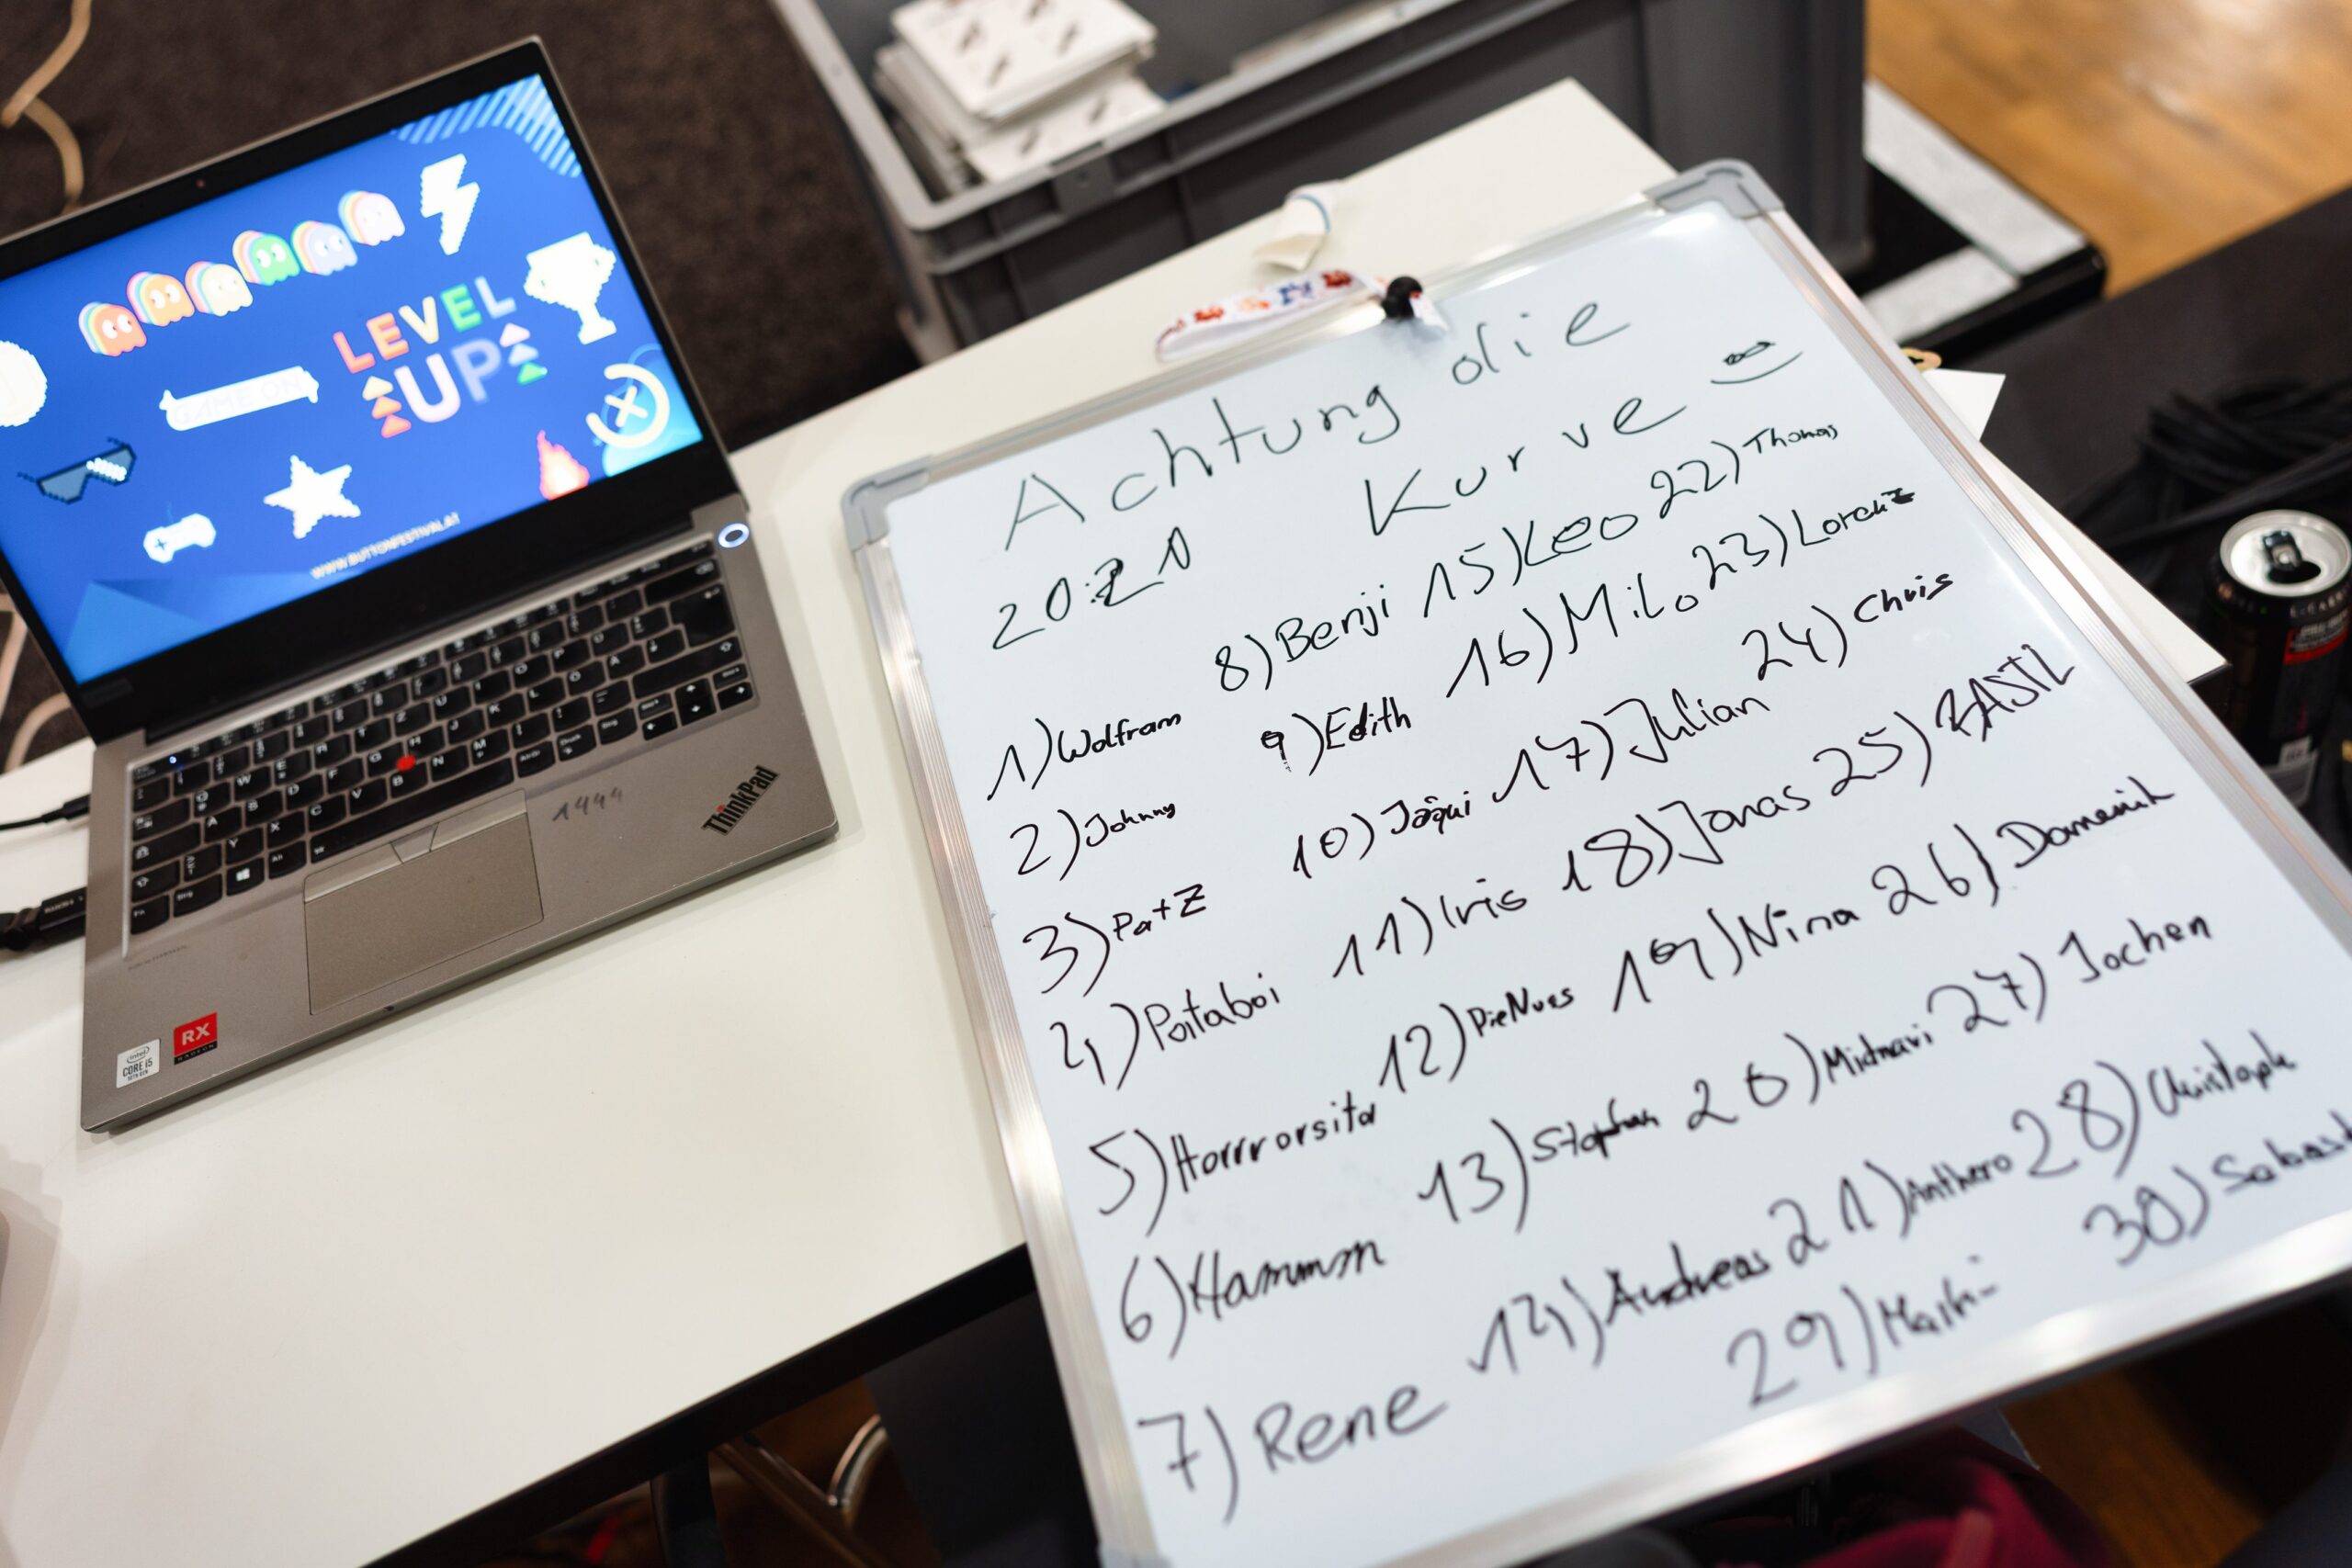 LEVEL
UP
GAME ON
WWW.BUTTONFESTIVAL.AT
1444
ThinkPad
RX
RADEON
intel
CORE i5
10TH GEN
Achtung die
Kurve
20:20
1) Wolfram
2) Johnny
3) PatZ
4) Potaboi
5) Horrrorsitor
6) Hammm
7) Rene
8) Benji
9) Edith
10) Jaqui
11) Iris
12) DieNues
13) Stephan
14) Andreas
15) Leo
16) Milo
17) Julian
18) Jonas
19) Nina
20) Midnavi
21) Anthero
22) Thomas
23) Lorenz
24) Chris
25) BASTL
26) Domenik
27) Jochen
28) Christoph
29)
30) Sebast